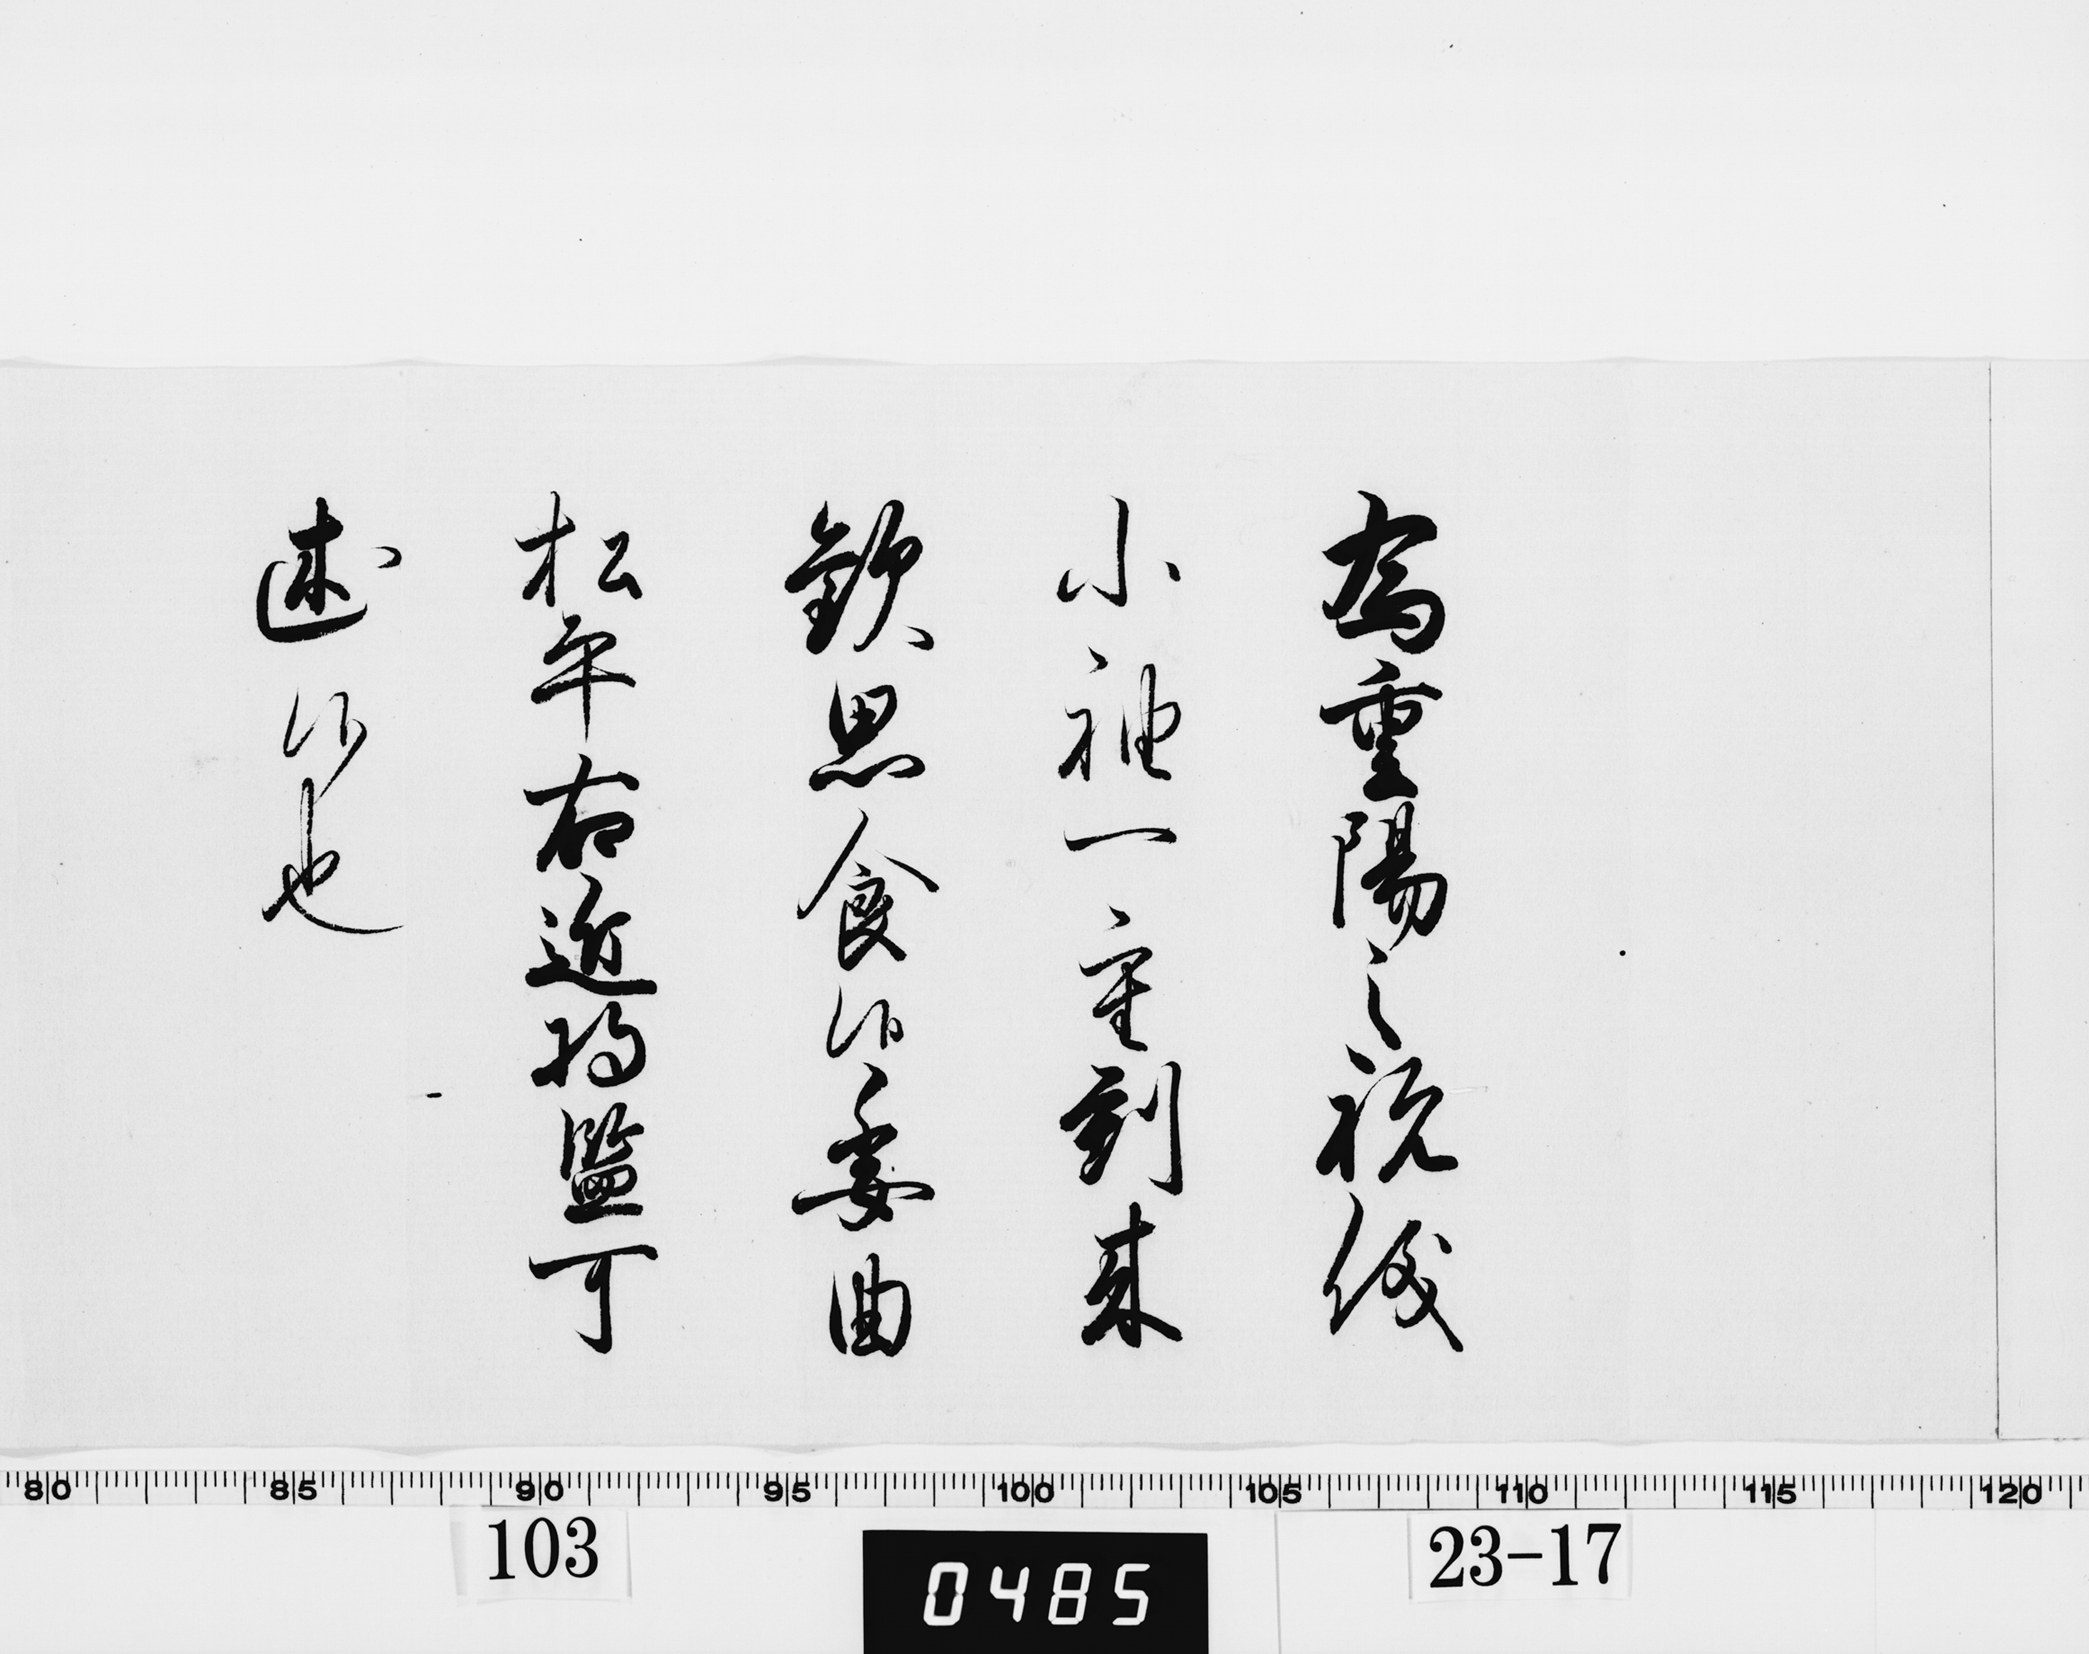 為重陽之祝儀
小袖一重到来
歓思食候委曲
松平右近将監可
述候也
80 85 90 95 100 105 110 115 120
103
0485
23-17